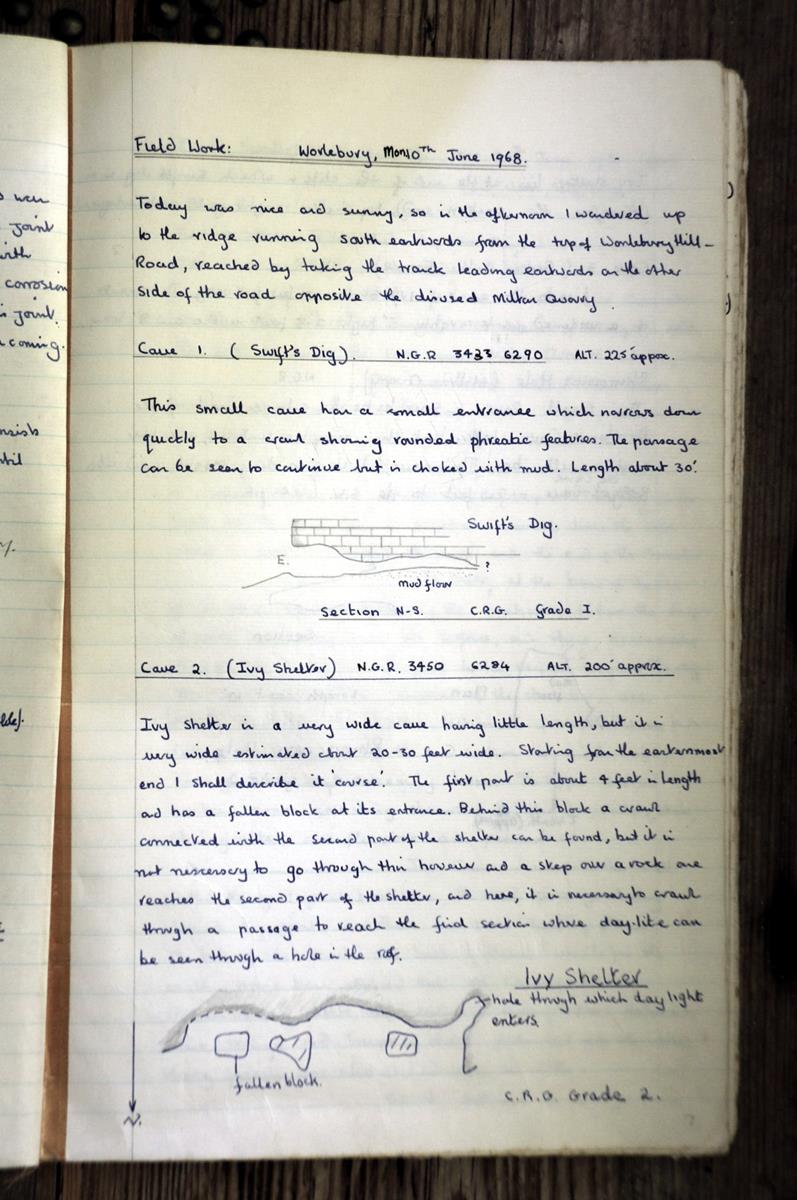 s wen
joint
with
corrosion
s joint.
coming.
nsists
Field Work: Worlebury, Mon 10Th June 1968.
Today was nice and sunny, so in the afternoon I wandered up
to the ridge running south eastwards from the top of Worlebury Hill-
Road, reached by taking the track leading eastwards on the other
side of the road opposite the disused Milton Quarry.
Cave 1. (Swift's Dig). N.G.R 3433 6290 ALT. 225' approx.
This small cave has a small entrance which narrows down
quickly to a crawl showing rounded phreatic features. The passage
can be seen to continue but is choked with mud. Length about 30'.
Swift's Dig.
E.
?
mud flow
Section N-S. C.R.G. Grade I.
Cave 2. (Ivy Shelter) N.G.R. 3450 6284 ALT. 200' approx.
Ivy Shelter is a very wide cave having little length, but it is
very wide estimated about 20-30 feet wide. Starting from the easternmost
end I shall describe it 'course'. The first part is about 4 feet in length
and has a fallen block at its entrance. Behind this block a crawl
connected with the second part of the shelter can be found, but it is
not nescescary to go through this however and a step over a rock one
reaches the second part of the shelter, and here, it is necessary to crawl
through a passage to reach the final section where day-lite can
be seen through a hole in the roof.
Ivy Shelter
hole through which day light
enters.
fallen block.
C.R.G. Grade 2.
N.